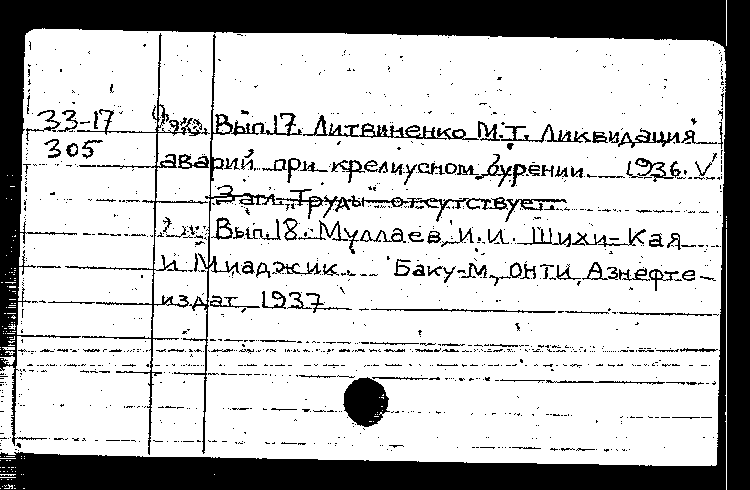 33-17 Вып.17. Литвиненко М.Т. Ликвидация
305
аварий при крелиусном бурении. 1936. V
Загл. "Труды" отсутствует.
Вып.18. Муллаев, И.И. Шихи-Кая
и Миаджик. Баку-М., ОНТИ, Азнефте-
издат, 1937